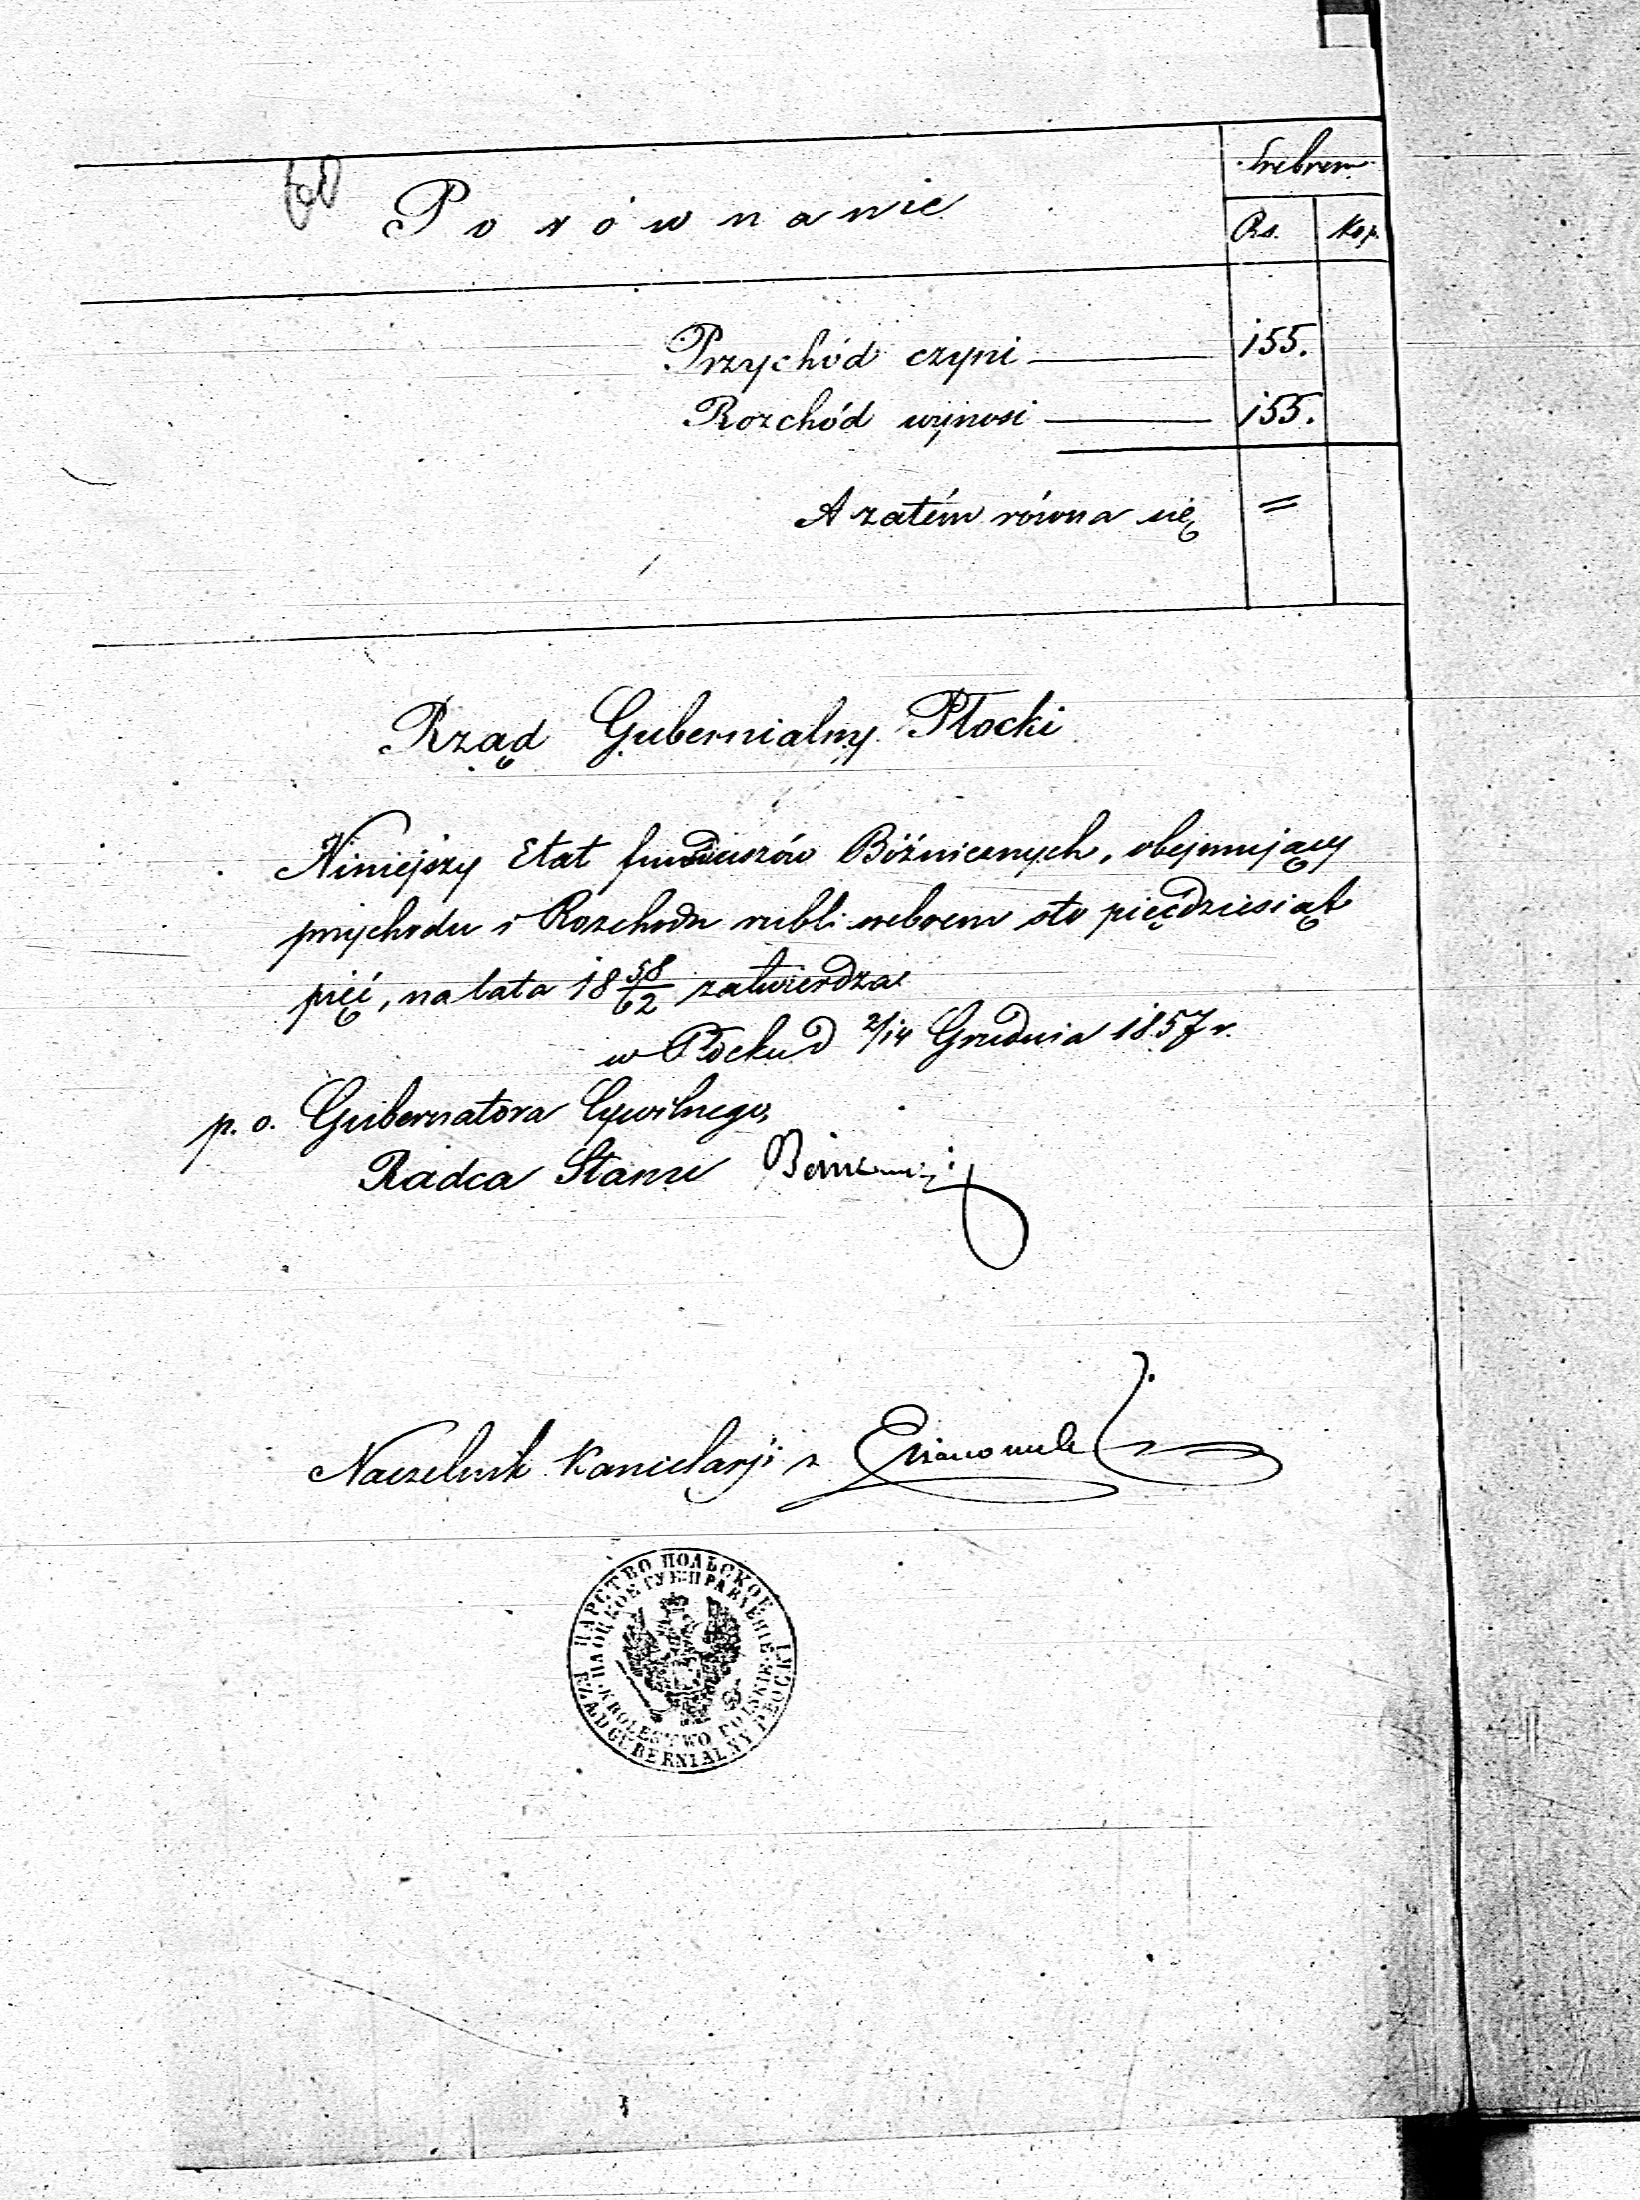 Srebrem
Porównanie
Rs. Kop.
Przychód czyni 155.
Rozchód wynosi 155.
A zatém równa się =
Rząd Gubernialny Płocki
Niniejszy Etat funduszów Bóżnicznych, obejmujący
przychodu i Rozchodu rubli srebrem sto pięćdziesiąt
pięć, na lata 18 58/62 zatwierdza
w Płocku d 2/14 Grudnia 1857 r.
p. o. Gubernatora Cywilnego,
Radca Stanu
Naczelnik Kancelarji
ЦАРСТВО ПОЛЬСКОЕ
ПЛОЦКОЕ ГУБ: ПРАВЛЕНІЕ
KROLESTWO POLSKIE
RZĄD GUBERNIALNY PŁOCKI